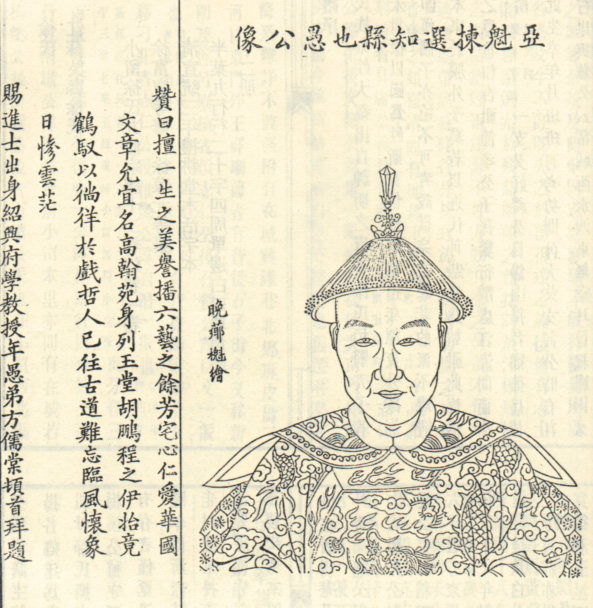 亞魁揀選知縣也愚公像
晩薌樾繪
贊曰擅三生之美譽播六藝之餘芳宅心仁愛華國
文章允宜名高翰苑身列玉堂胡鵬程之伊始竟
鶴馭以徜徉於戲哲人已往古道難忘臨風懷象
日慘雲茫
賜進士出身紹興府學教授年愚弟方儒棠頓首拜題